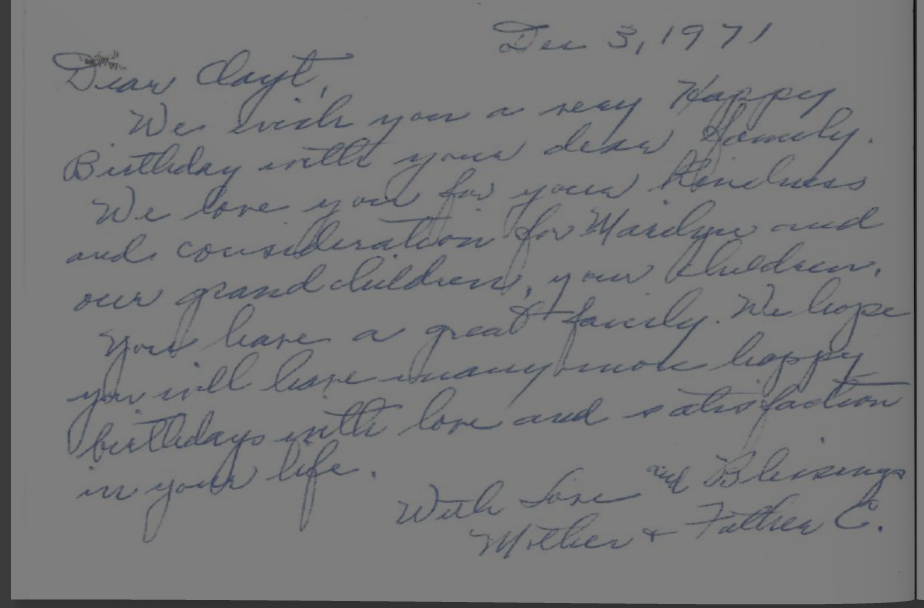 Dec 3, 1971
Dear Clayt,
We wish you a very Happy
Birthday with your dear family.
We love you for your kindness
and consideration for Marilyn and
our grandchildren, your children.
You have a great family. We hope
you will have many more happy
birthdays with love and satisfaction
in your life.
With Love and Blessings
Mother + Father C.